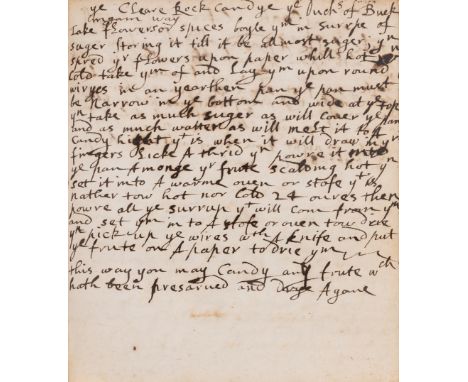 ye Cleare Rock Candye ye Duchs of Buck
way
take flowers or spices boyle ym in surrpe of
suger storing it till it be allmost suger yn
spred yr flowers upon paper whill hot
Cold take ym of and Lay ym upon round
wiryes in an yearthen pan ye pan must
be Narrow in ye bottom and wide at ye tope
yn take as much suger as will Couer ye pan
and as much watter as will melt it to A
Candy hight yt is when it will draw in yr
fingers Licke A thrid yn powre it into
ye pan Amonge yr frute scalding hot yn
set it into A warme ouen or stofe yt is
nather tow hot nor Cold 24 oures then
powre all ye surrup yt will Com from ym
and set ym in to A stofe or ouen tow drie
yn pick up ye wires wth A knife and put
ye froute on A paper to drie ym
this way you may Candy any froute wch
hath been presarued and drye Agane